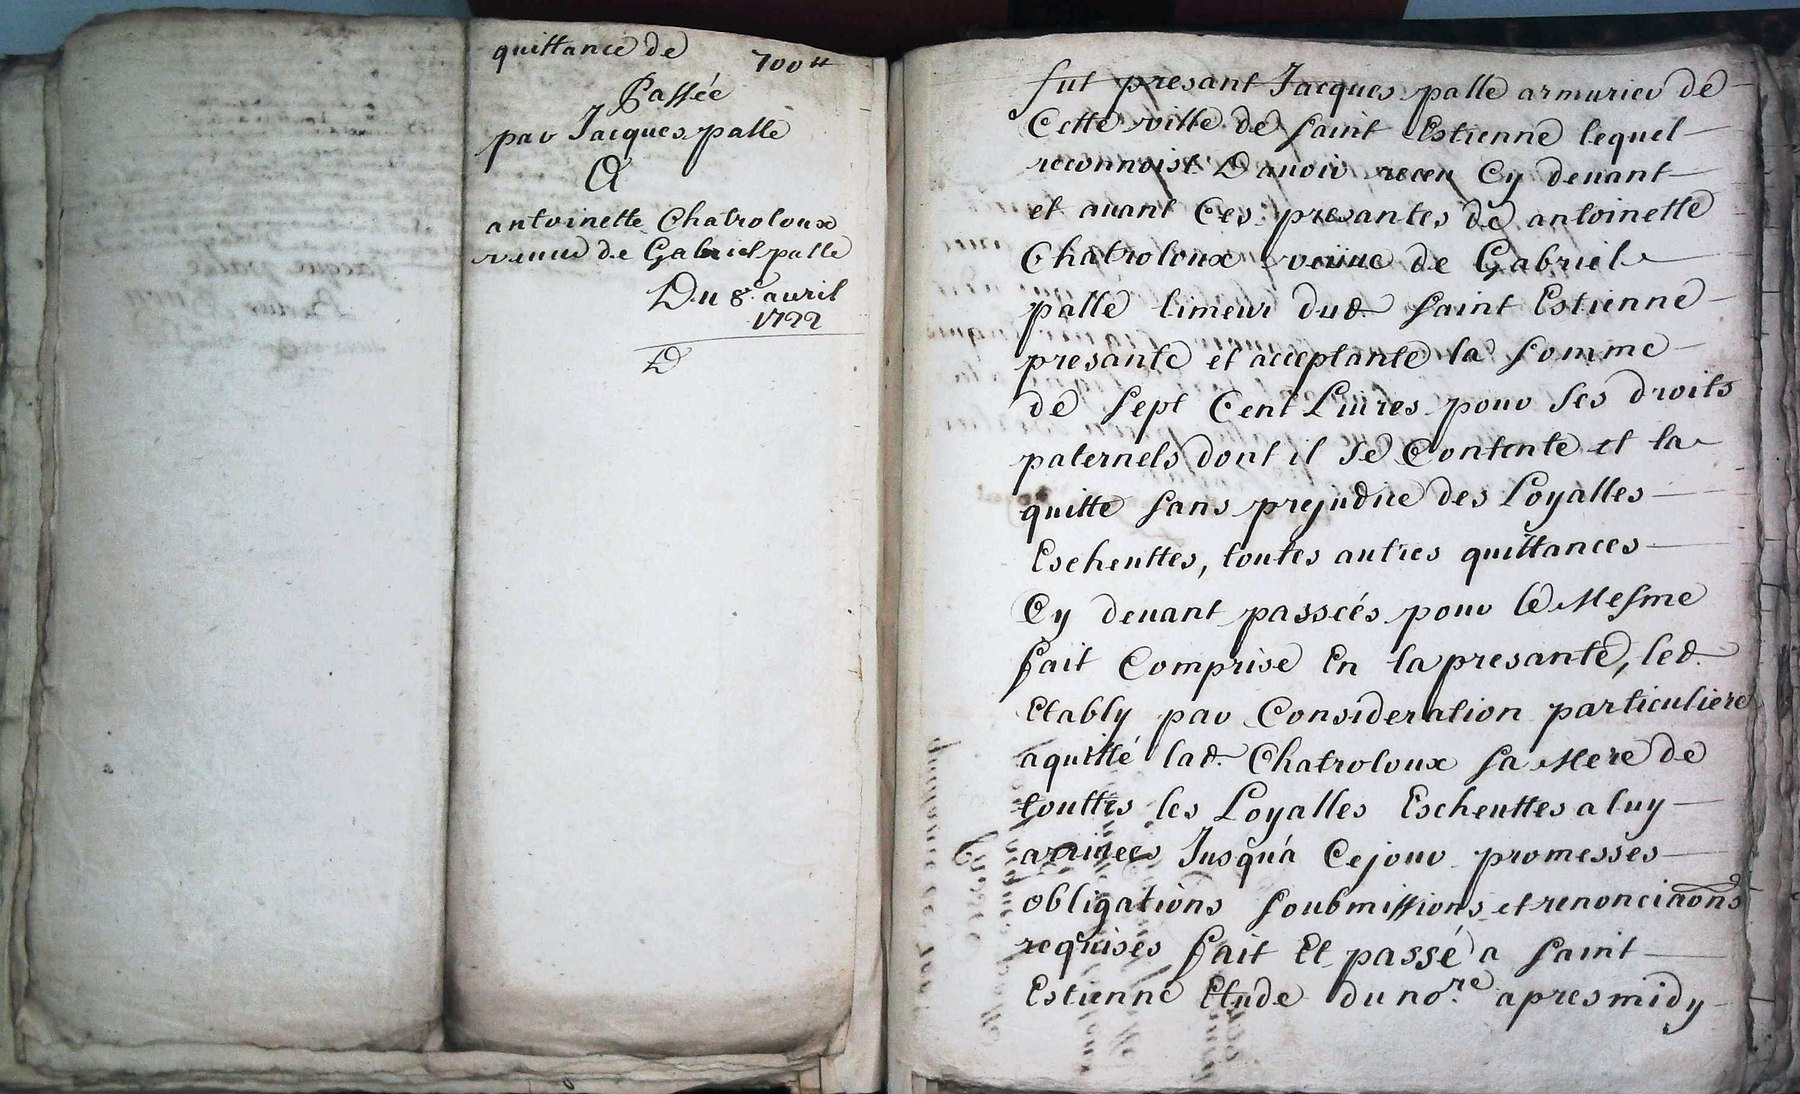 quittance de
700 ₶
Passée
par Jacques palle
A
antoinette Chatroloux
veuue de Gabriel palle
Du 8e. auril
1722
D
fut presant Jacques palle armurier de
Cette ville de saint Estienne lequel
reconnoist D'auoir receu Cy deuant
et auant Ces presantes de antoinette
Chatroloux veuue de Gabriel
palle limeur dud. saint Estienne
presante et acceptante la somme
de sept Cent Liures pour ses droits
paternels dont il se Contente et la
quitte sans prejudice des Loyalles
Escheuttes, toutes autres quittances
Cy deuant passeés pour le Mesme
fait Comprise En la presante, led.
Etably par Consideration particuliere
aquitté lad. Chatroloux sa Mere de
touttes les Loyalles Escheuttes a luy
arriuees Jusqu'a Cejour promesses
obligations soubmissions et renonciaons
requises fait Et passé a saint
Estienne Etude du nore. apres midy